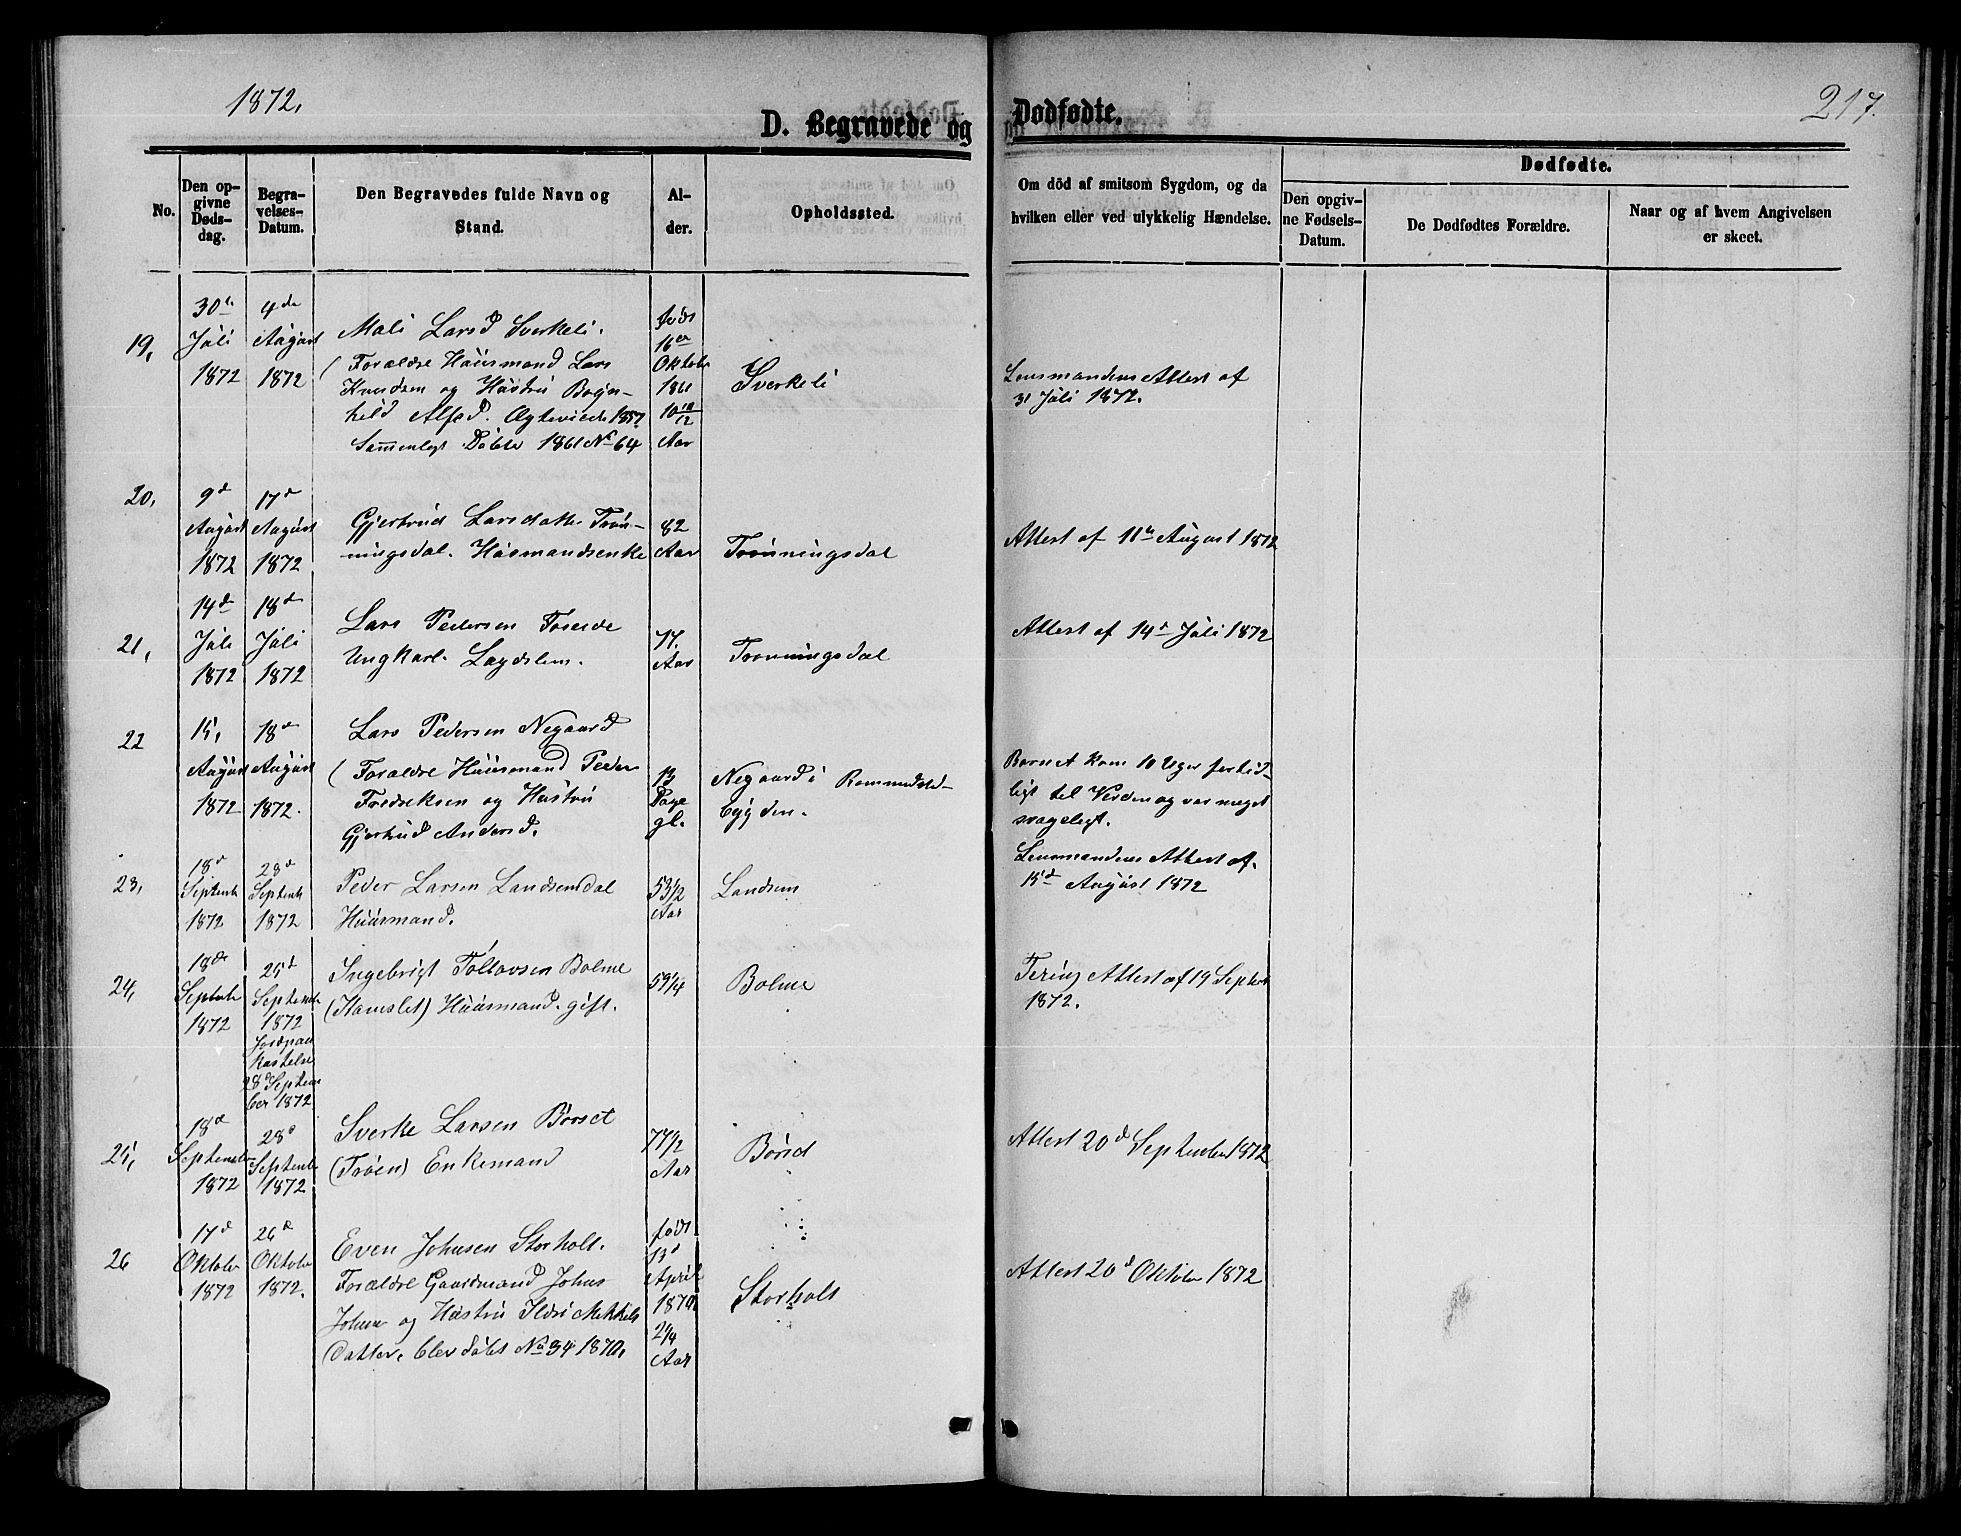 1872.
217.
D. Begravede og Dødfødte.
No.
Den op-
givne
Døds-
dag.
Begra-
velses-
Datum.
Den Begravedes fulde Navn og
Stand.
Al-
der.
Opholdssted.
Om död af smitsom Sygdom, og da
hvilken eller ved ulykkelig Hændelse.
Dødfødte.
Den opgiv-
ne Fødsels-
Datum.
De Dødfødtes Forældre.
Naar og af hvem Angivelsen
er skeet.
19,
30te
Juli
1872
4de
August
1872
Mali Larsd Sverkeli.
(Forældre Huusmand Lars
Knudsen og Hustru Bogn-
hild Alfsd. Ægteviede 1857
Sammenlagt Døbte 1861 No 64
født
16er
Oktobr
1861
10 10/12
Aar
Sverkeli
Lensmandens Attest af
31 Juli 1872.
20,
9d
August
1872
17d
August
1872
Gjertrud Larsdatter Trøn-
ningsdal. Husmandsenke
82
Aar
Trønningsdal
Attest af 11te August 1872
21,
14d
Juli
1872
18d
Juli
1872
Lars Pedersen Foseide
Ungkarl. Lægdslem.
77.
Aar
Trønningsdal
Attest af 14d Juli 1872
22
15,
August
1872
18d
August
1872.
Lars Pedersen Negaard
(Forældre Huusmand Peder
Fredriksen og Hustru
Gjertrud Andersd.
13
Dage
gl.
Negaard i Romundstad-
bygden.
Barnet kom 10 Uger fortid-
ligt til Verden og var meget
svageligt.
Lensmandens Attest af
15d August 1872
23,
18d
Septembr
1872
28d
Septembr
1872
Peder Larsen Landsemdal
Huusmand.
53 1/2
Aar
Landsem
24,
18de
Septembr
1872
25d
September
1872
Jordpaa
kastelse
28d Septem
ber 1872
Ingebrigt Tollovsen Bolme
(Hamslet) Huusmand. gift.
59 1/4
Bolme
Attest af 19 Septbr
1872.
25,
18d
September
1872
28d
Septembr
1872
Sverke Larsen Børset
(Trøen) Enkemand
77 1/2
Aar
Attest 20d September 1872
26
17d
Oktober
1872
26d
Oktober
1872.
Even Johnsen Storholt.
Forældre Gaardmand Johns
Johnsen og Hustru Ildri Mikkels
Datter, blev døbt No 34 1870,
født
13d
April
1870
2 1/4
Aar
Storholt
Attest 20d Oktober 1872